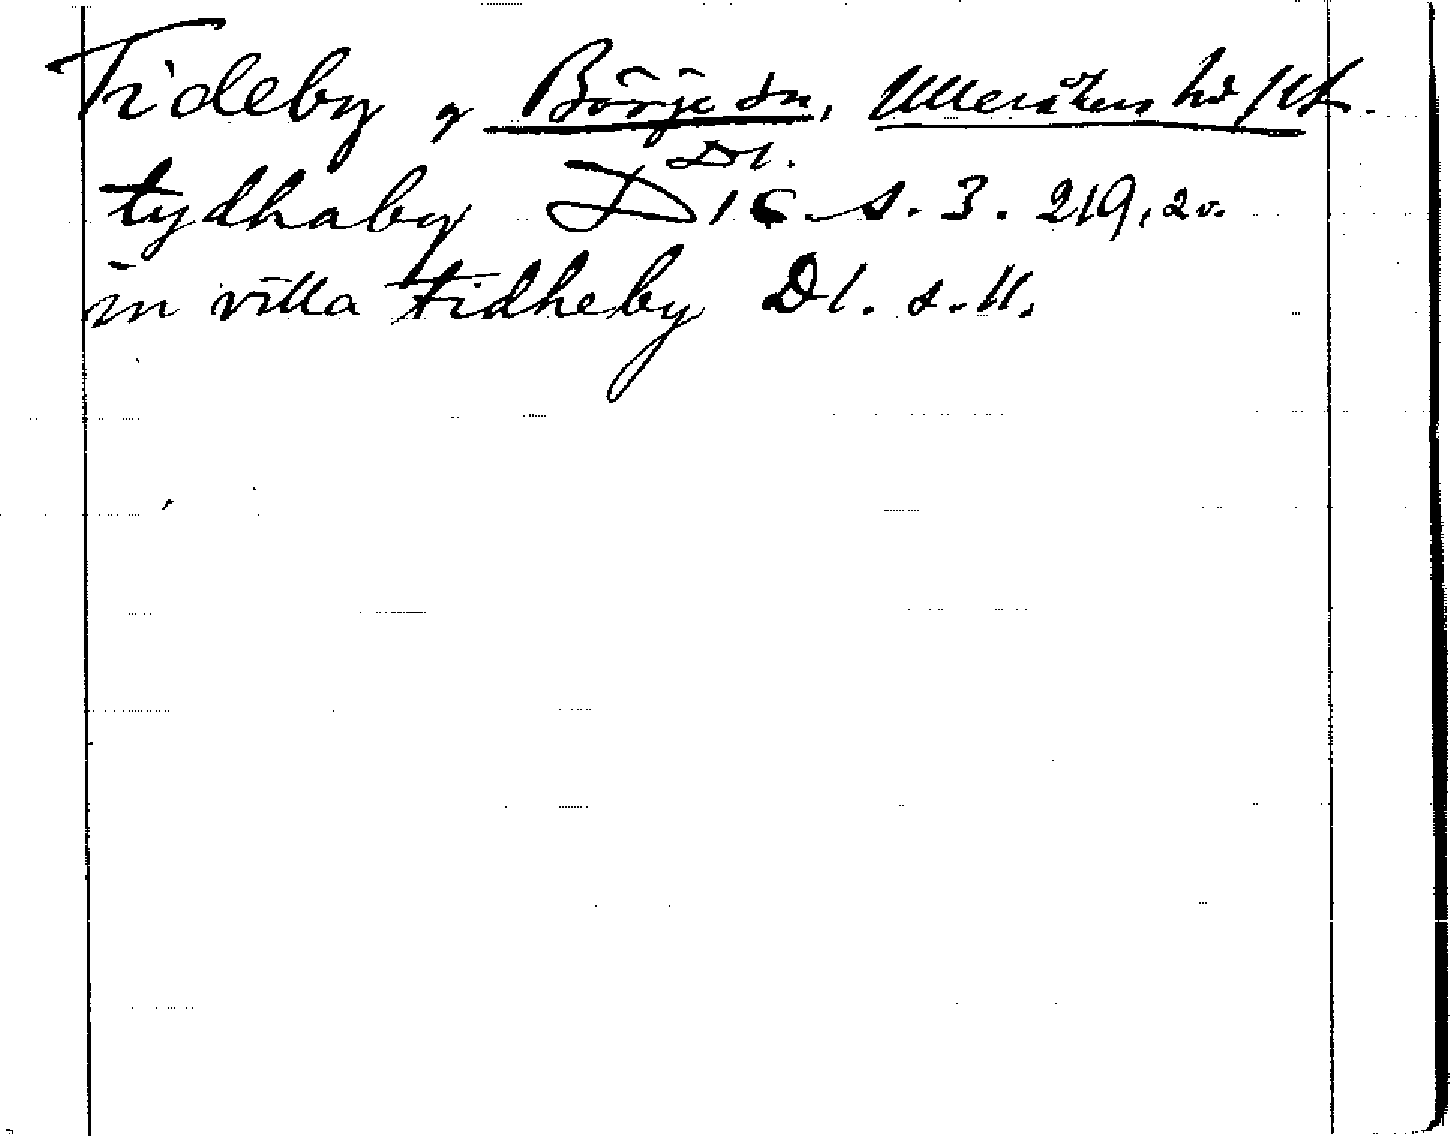 Tideby, Börje sn, Ulleråkers hd, Upl.
Dl.
tydhaby D16 s. 3. 219, 20.
in villa tidheby Dl. s. 11.